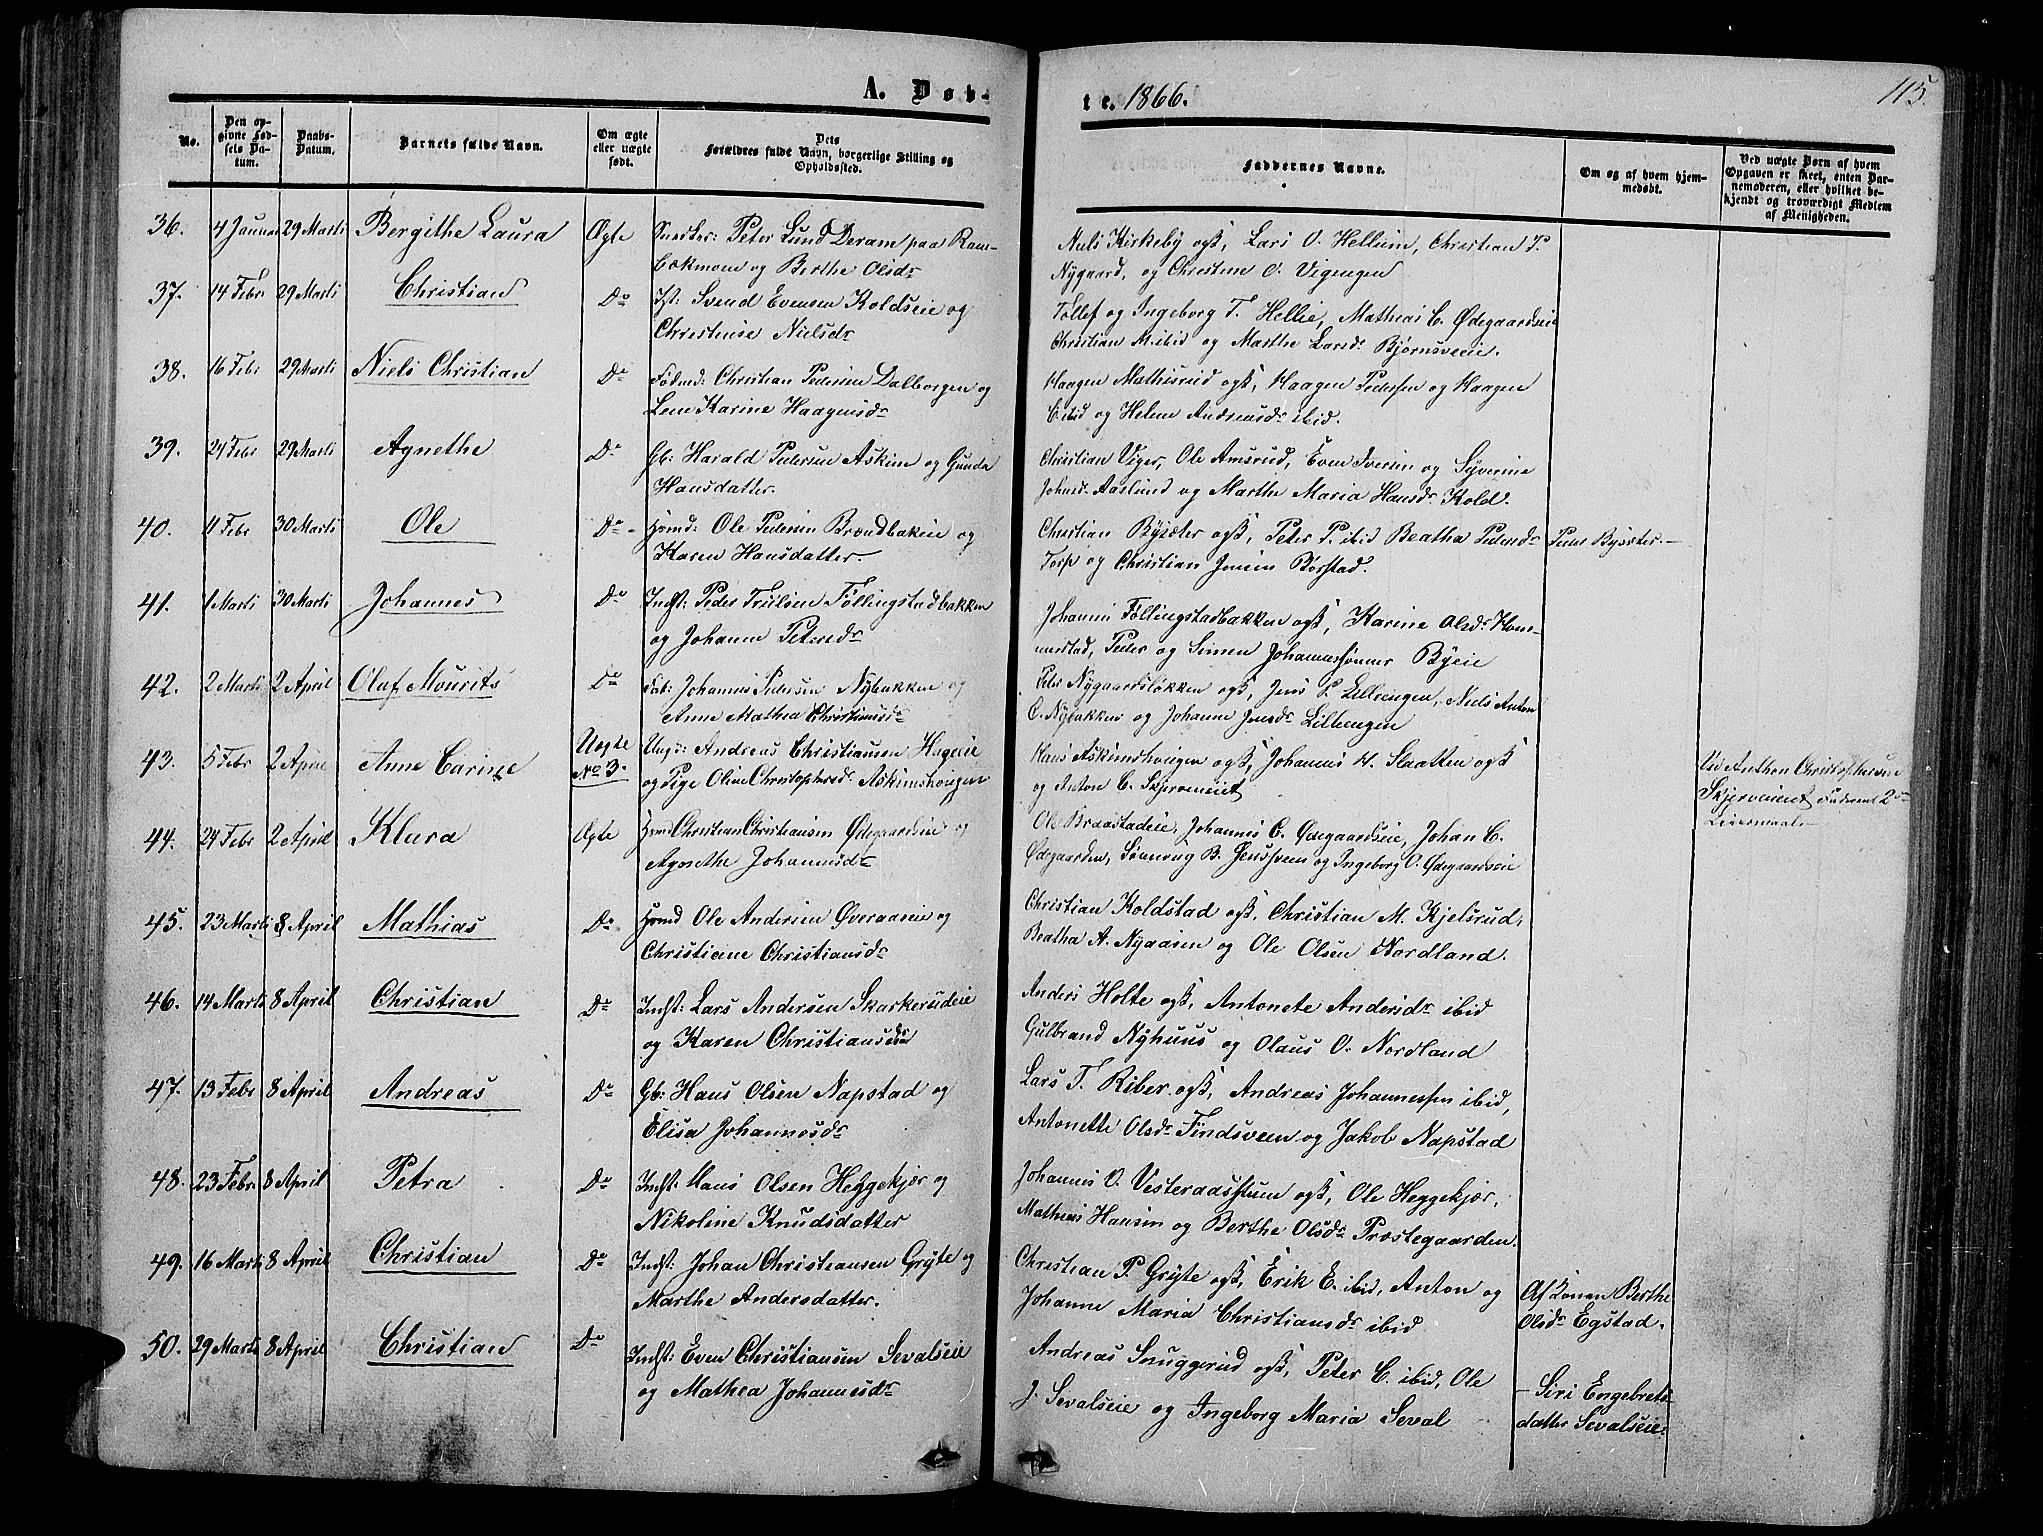 A. Døb-
te. 1866.
115.
No.
Den op-
givne Fød-
sels Da-
tum.
Daabs-
Datum.
Barnets fulde Navn.
Om ægte
eller uægte
født.
Dets
Forældres fulde Navn, borgerlige Stilling og
Opholdssted.
Faddernes Navne.
Om og af hvem hjem-
medøbt.
Ved uægte Børn af hvem
Opgaven er skeet, enten Bar-
nemoderen, eller hvilket be-
kjendt og troværdigt Medlem
af Menigheden.
36. 4 Januar 29 Marti Bergithe Laura Ægte Snedker: Peter Lund Deram paa Ram-
bækmoen og Berthe Olsdr
Niels Kirkeby ogß, Lars O. Hellum, Christian P.
Nygaard, og Christine O. Vigengen
37. 14 Febr 29 Marti Christian Do Ist: Svend Evensen Koldseie og
Christense Nielsdr
Tollef og Ingeborg T. Hellie, Mathias C. Ødegaardseie
Christian M. ibid og Marthe Larsdr Bjørnsveie.
38. 16 Febr 29 Marti Niels Christian Do Fødmd: Christian Pedersen Dalborgen og
Lene Karine Haagensdr
Haagen Mathisrud ogß, Haagen Pedersen og Haagen
C ibid og Helene Andreasdr ibid.
39. 24 Febr 29 Marti Agnethe Do Gb: Harald Pedersen Askim og Gunda
Hansdatter.
Christian Viger, Ole Amsrud, Even Iversen og Syverine
Johnsdr Aaslund og Marthe Maria Hansdr Kold.
40. 11 Febr 30 Marti Ole Do Hsmd: Ole Pedersen Brøndbakken og
Karen Hansdatter.
Christian Bysæter ogß, Peter P. ibid Beatha Pedersdr
Torp og Christian Jensen Børstad.
Peder Bysæter.
41. 1 Marti 30 Marti Johannes Do Indst: Peder Trulsen Føllingstadbakken
og Johanne Petersdr
Johannes Føllingstadbakken ogß, Karine Olsdr Hom-
merstad, Peder og Simen Johannessønner Byeie
42. 2 Marti 2 April Olaf Mourits Do Fab: Johannes Pedersen Nybakken og
Anne Mathea Christiansdr
Peter Nygaardsløkken ogß, Jens P. Lillengen, Niels Anton
C. Nybakken og Johanne Jensdr Lillengen
43. 5 Febr 2 April Anne Carine Uægte Ungs: Andreas Christiansen Hageeie
No 3. og Pige Oline Christophersdr Askimshougen
Hans Askimshougen ogß, Johannes H. Slaatten ogß
og Anton C. Skjerveneiet
Ved Anthon Christophersen
Skjerveneiet Faderens 2det
Leiermaal
44. 24 Febr 2 April Klara Ægte Hsmd Christian Christiansen Ødegaardseie og
Agnethe Johannesdr
Ole Braastadeie, Johannes C. Ødegaardseie, Johan C.
Ødegaarden, B. Jensveen og Ingeborg O. Ødegaardseie
45. 23 Marti 8 April Mathias Do Hsmd Ole Andersen Øveraaseie og
Christiane Christiansdr
Christian Koldstad ogß, Christian M. Kjelsrud,
Beatha A. Nyaasen og Ole Olsen Nordland.
46. 14 Marts 8 April Christian Do Indst: Lars Andersen Skarkerudeie
og Karen Christiansdr
Anders Holte ogß, Antonete Andersdr ibid
Gulbrand Nyhuus og Olaus O. Nordland
47. 13 Febr 8 April Andreas Do Gb: Hans Olsen Napstad og
Elisa Johannesdr
Lars T. Riber ogß, Andreas Johannessen ibid,
Antonette Olsdr Findsveen og Jakob Napstad
48. 23 Febr 8 April Petra Do Indst: Hans Olsen Heggekjær og
Nikoline Knudsdatter
Johannes O. Vesteraasstuen ogß, Ole Heggekjær,
Mathias Hansen og Berthe Olsdr Præstegaarden.
49. 16 Marts 8 April Christian Do Indst: Johan Christiansen Gryte og
Marthe Andersdatter.
Christian P. Gryte ogß, Erik E. ibid, Anton og
Johanne Maria Christiansdr ibid
Af Konen Berthe
Olsdr Egstad.
50. 29 Marts 8 April Christian Do Indst: Even Christiansen Sevalseie
og Mathea Johannesdr
Andreas Snuggerud ogß, Peter C. ibid, Ole
J. Sevalseie og Ingeborg Maria Seval
- Siri Engebrets-
datter Sevalseie.